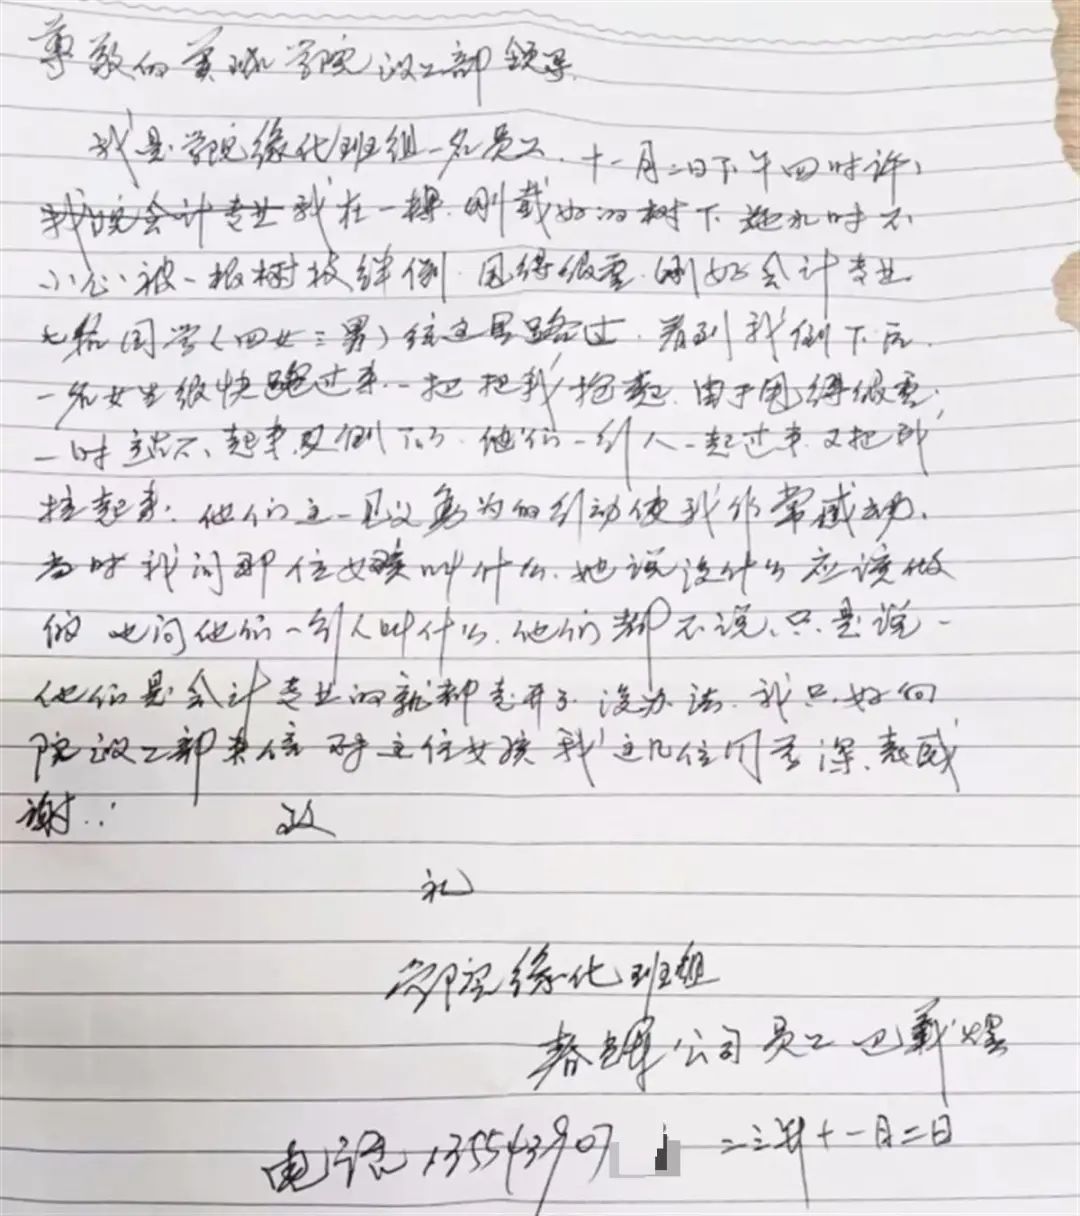 尊敬的 学院 政工部领导
我是学院绿化班组一名员工、十一月二日下午四时许、
我院会计专业我在一棵刚栽好的树下 时不
小心被一根树枝绊倒 很重 刚好会计专业
七名同学(四女三男)经这里路过、看到我倒下后、
一名女生很快跑过来一把把我抱起、由于 很重
一时站不起来又倒下了、他们一行人一起过来又把我
扶起来、他们这一见义勇为的行动使我非常感动、
当时我问那位女孩叫什么、她说没什么应该做
的 也问他们一行人叫什么、他们都不说、只是说
他们是会计专业的就都走开了 没办法、我只好向
院政工部来信 对这位女孩 这几位同学深表感
谢..
致
礼
学院绿化班组
春 公司员工 巴
电话135543907
二三年十一月二日